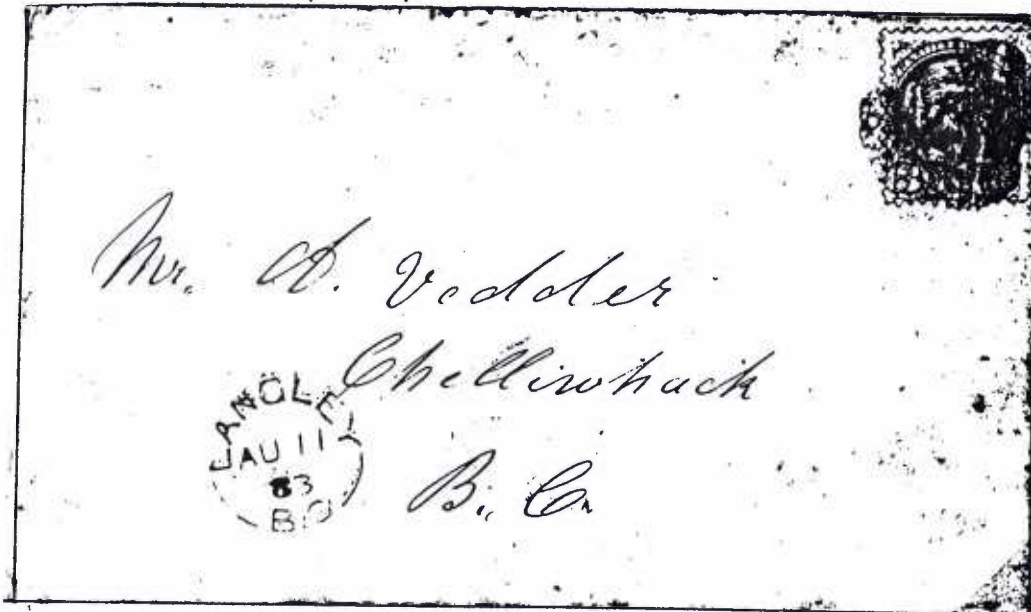 Mr. A. Vedder
Chelliwhack
B. C.
LANGLEY
AU 11
83
B.C